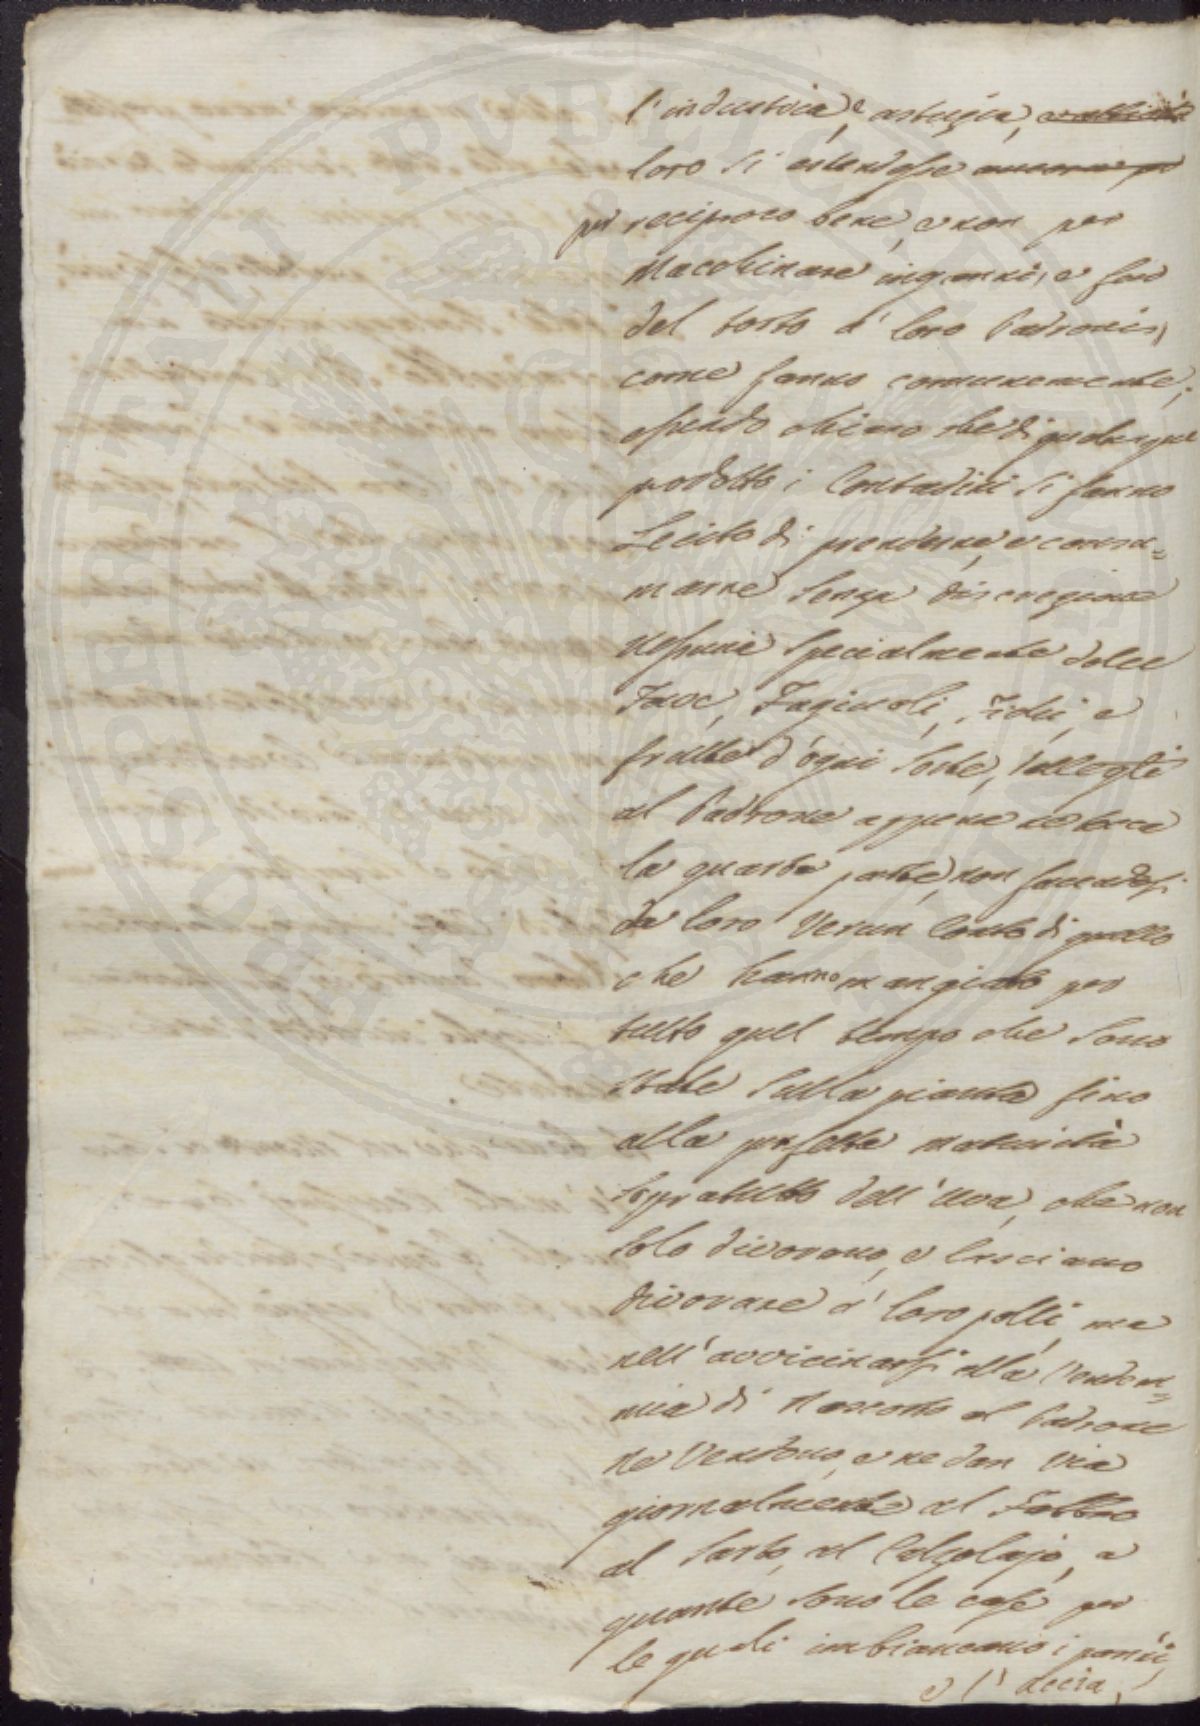 l'industria, e astuzia, e attività
loro si estendesse ancora pi
per reciproco bene, e non per
Macchinare inganni, e far
del torto a' loro Padroni,
come fanno comunemente;
essendo chiaro che di qualunque
prodotto i Contadini si fanno
Lecito di prenderne, e consu=
marne senza discrezione
nessuna specialmente delle
Fave, Fagiuoli, Fichi, e
frutta d'ogni sorte, talloché
al Padrone appena ne tocca
la quarta parte, non facendosi
da loro Verun Conto di quello
che hanno mangiato per
tutto quel tempo che sono
state sulla pianta fino
alla perfetta maturità
sopratutto dell'uva, che non
solo divorano, e lasciano
divorare a' loro polli, ma
nell'avvicinarsi alla Vendem=
mia di Nascosto al Padrone
ne Vendono, e ne dan via
giornalmente al Fabbro
al Sarto, al Calzolajo, a
quante sono le case per
le quali imbiancano i panni,
e l' accia,